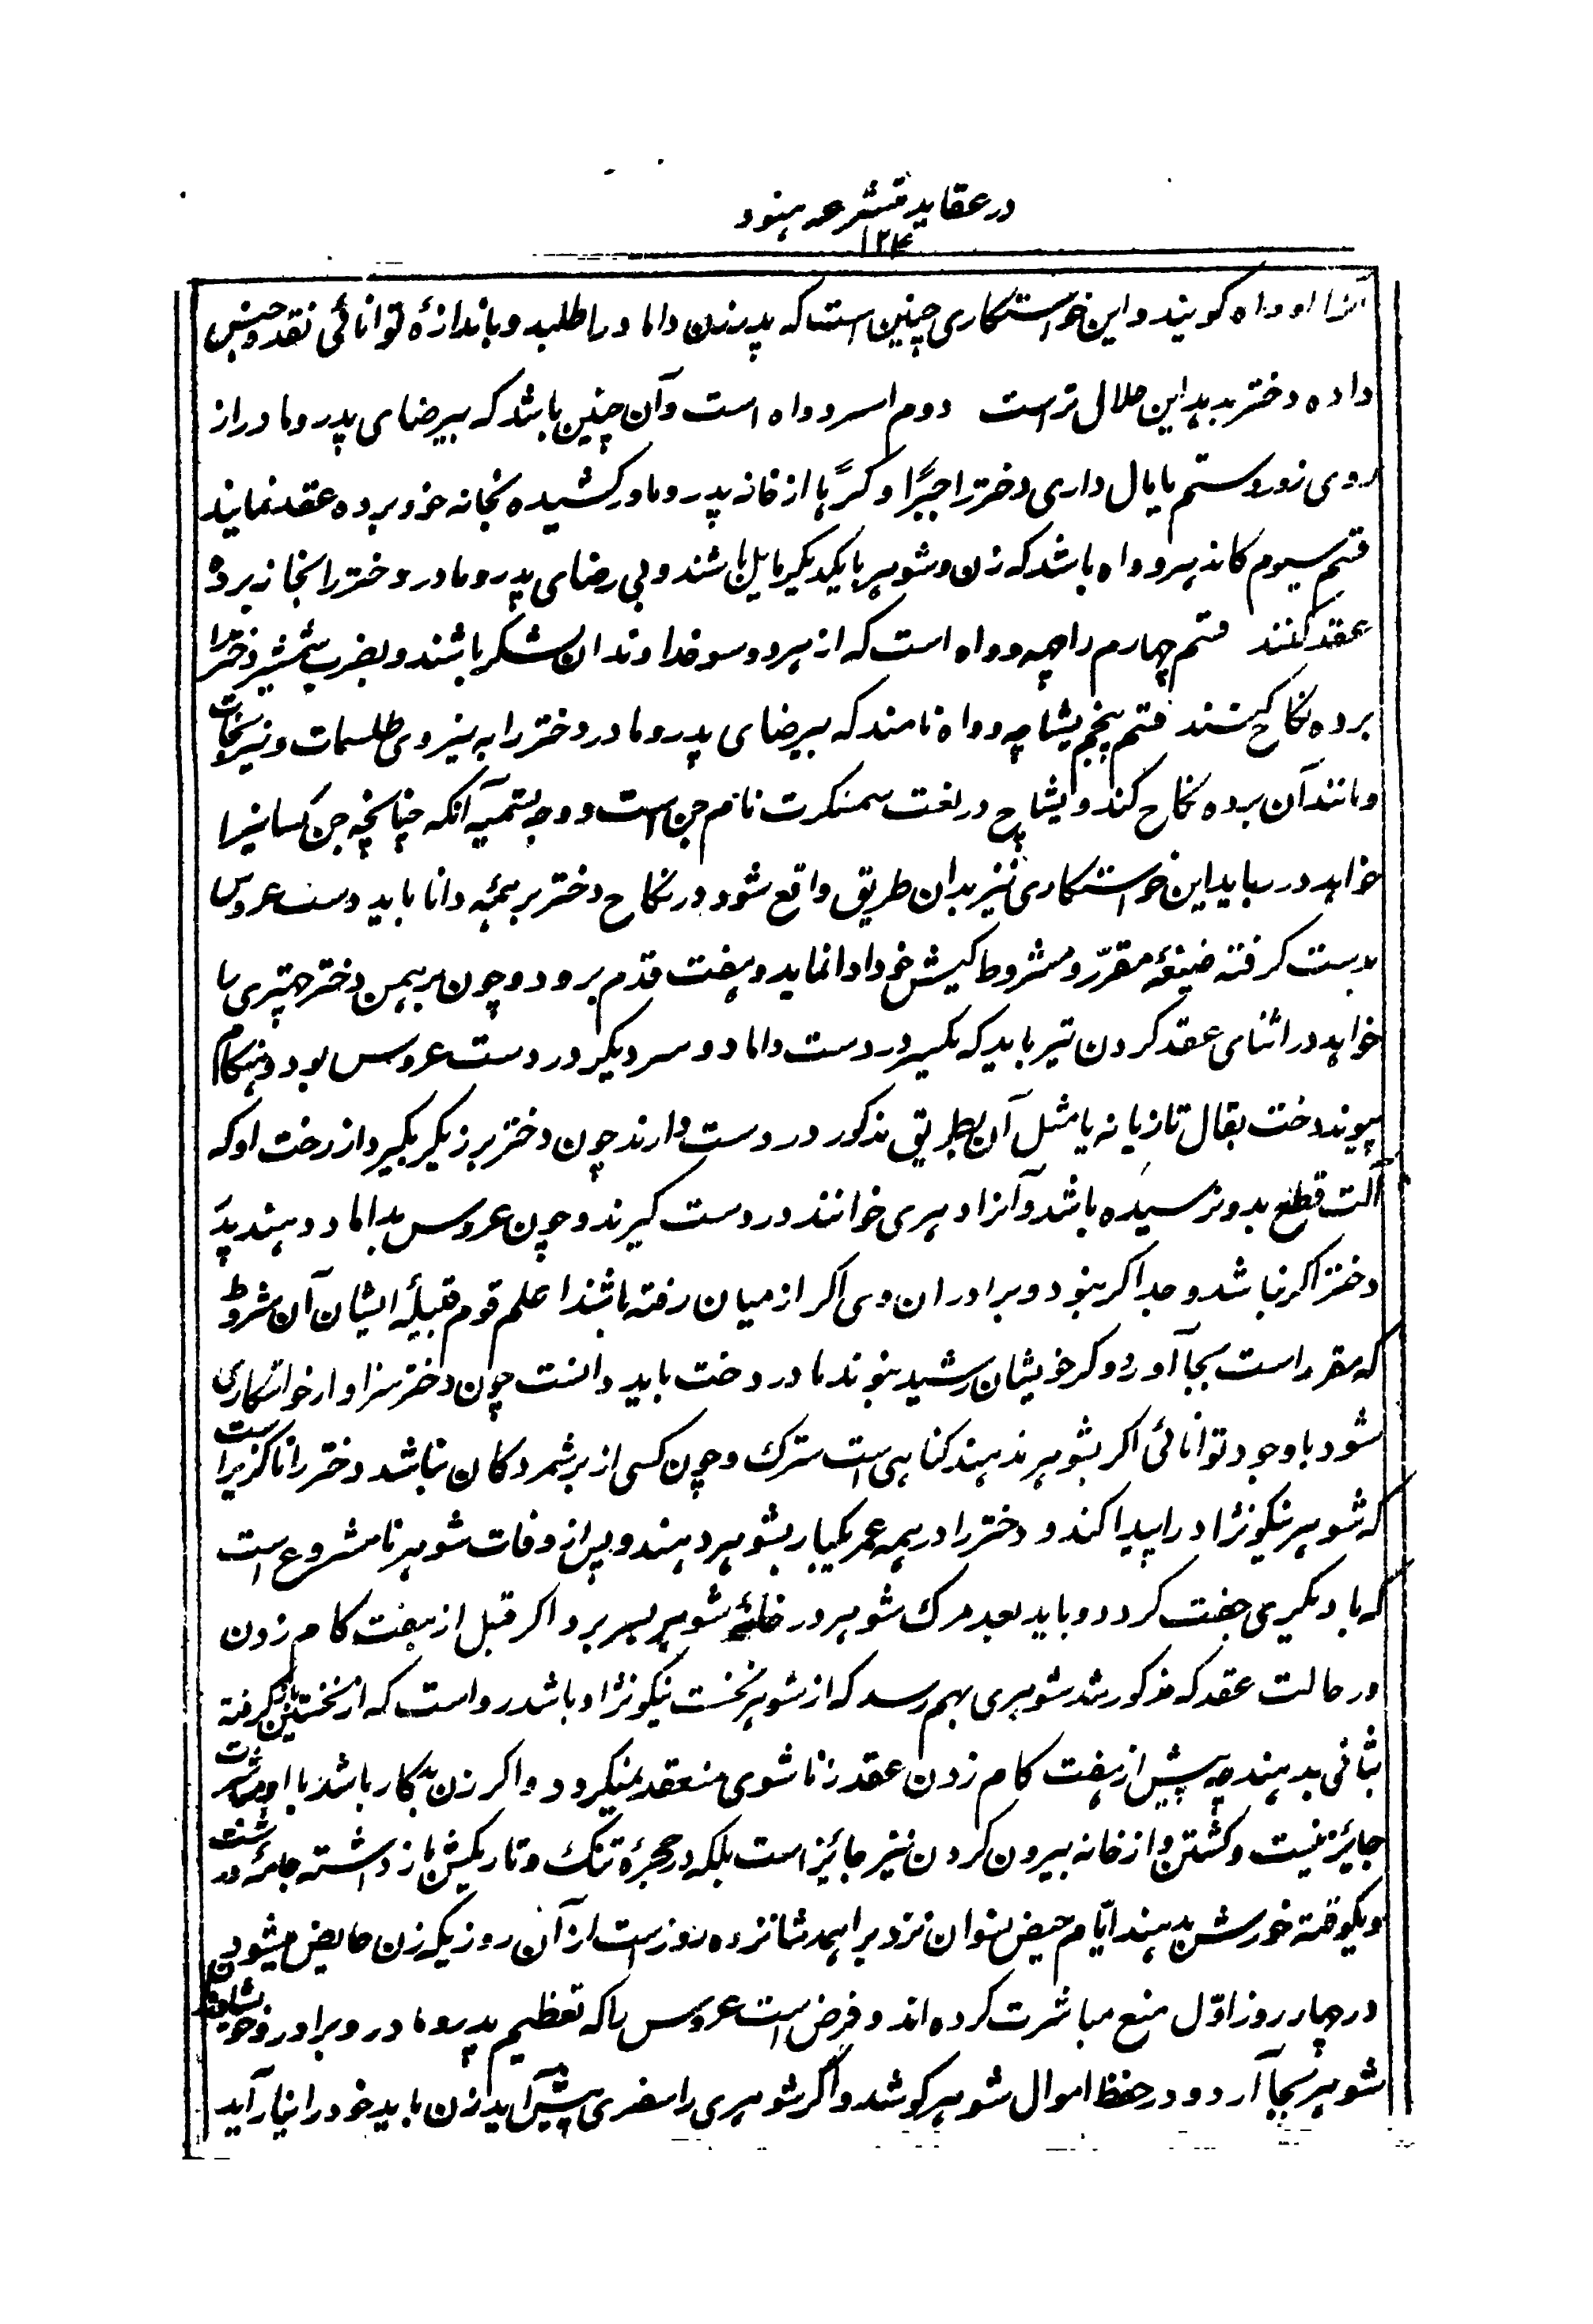 در عقاید متشرعه هنود
۱۲۴
آنرا اوداه کویند و این خواستکاری چنین است که پدر زن داماد را طلبد و باندازهٔ توانائی نقد و جنس
داده دختر بدهد این حلال تر است دوم اسرودواه است و آن چنین باشد که بیرضای پدر و مادر از
روی زور و ستم یا بمال داری دختر را جبرًا و کرًها از خانه پدر و مادر کشیده بخانه خود برده عقد نمایند
قسم سیوم کاندهرو واه باشد که زن و شوهر با یکدیکر مایل باشند و بی رضای پدر و مادر دختر را بخانه برده
عقد کنند قسم چهارم راچهه وواه است که از هر دو سو خداوندان لشکر باشند و بضرب شمشیر دختر را
برده نکاح کنند قسم پنجم پشاچه وواه نامند که بیرضای پدر و مادر دختر را به نیروی طلسمات و نیرنجات
و مانند آن برده نکاح کند و پشاچ در لغت سمنکرت نام جن است و وجه تسمیه آنکه چنانچه جن کسانیرا
خواهد در رباید این خواستکاری نیز بدان طریق واقع شود در نکاح دختر برهمنه دانا باید دست عروس
بدست کرفته ضیغهٔ مقرّر و مشروط کیش خود ادا نماید و هفت قدم برود و چون برهمن دختر چتری را
خواهد در اثنای عقد کردن تیر باید که یکسر در دست داماد و سر دیکر در دست عروس بود و هنکام
پیوند دخت بقال تازیانه یا مثل آن بطریق مذکور در دست دارند چون دختر برزیکر بکیرد از رخت او که
آلت قطع بدو نرسیده باشد و آنرا دهری خوانند در دست کیرند و چون عروس بداماد دهند پدر
دختر اکر نباشد و جد اکر نبود و برادران وی اکر از میان رفته باشند اعلم قوم قبیلهٔ ایشان آن شروط
که مقرر است بجا آورد و کر خویشان رشید نبوند مادر دخت باید دانست چون دختر سزاوار خواستکاری
شود با وجود توانائی اکر بشوهر ندهند کناهی است سترک و چون کسی از برشمردکان نباشد دختر را ناکزیر است
که شوهر نیکو نژاد را پیدا کند و دختر را در همه عمر یکبار بشوهر دهند و پس از وفات شوهر نامشروع است
که با دیکری جفت کردد و باید بعد مرک شوهر در خانهٔ شوهر بسر برد اکر قبل از هفت کام زدن
در حالت عقد که مذکور شد شوهری بهم رسد که از شوهر نخست نیکو نژاد باشد رواست که از نخستین باز کرفته
بثانی بدهند چه پیش از هفت کام زدن عقد زناشوی منعقد نمیکردد و اکر زن بدکار باشد با او مباشرت
جایز نیست و کشتن و از خانه بیرون کردن نیز جائز است بلکه در حجرهٔ تنک و تاریکش باز داشته جامهٔ درشت
و یکوقته خورش بدهند ایّام حیض نسوان نزد براهمه شانزده روز است از آن روزیکه زن حایض میشود
در چهار روز اوّل منع مباشرت کرده اند و فرض است عروس را که تعظیم پدر و مادر و برادر و خویشاوندان
شوهر بجا آرد و در حفظ اموال شوهر کوشد و اکر شوهری را سفری پیش آید زن باید خود را نیاراید